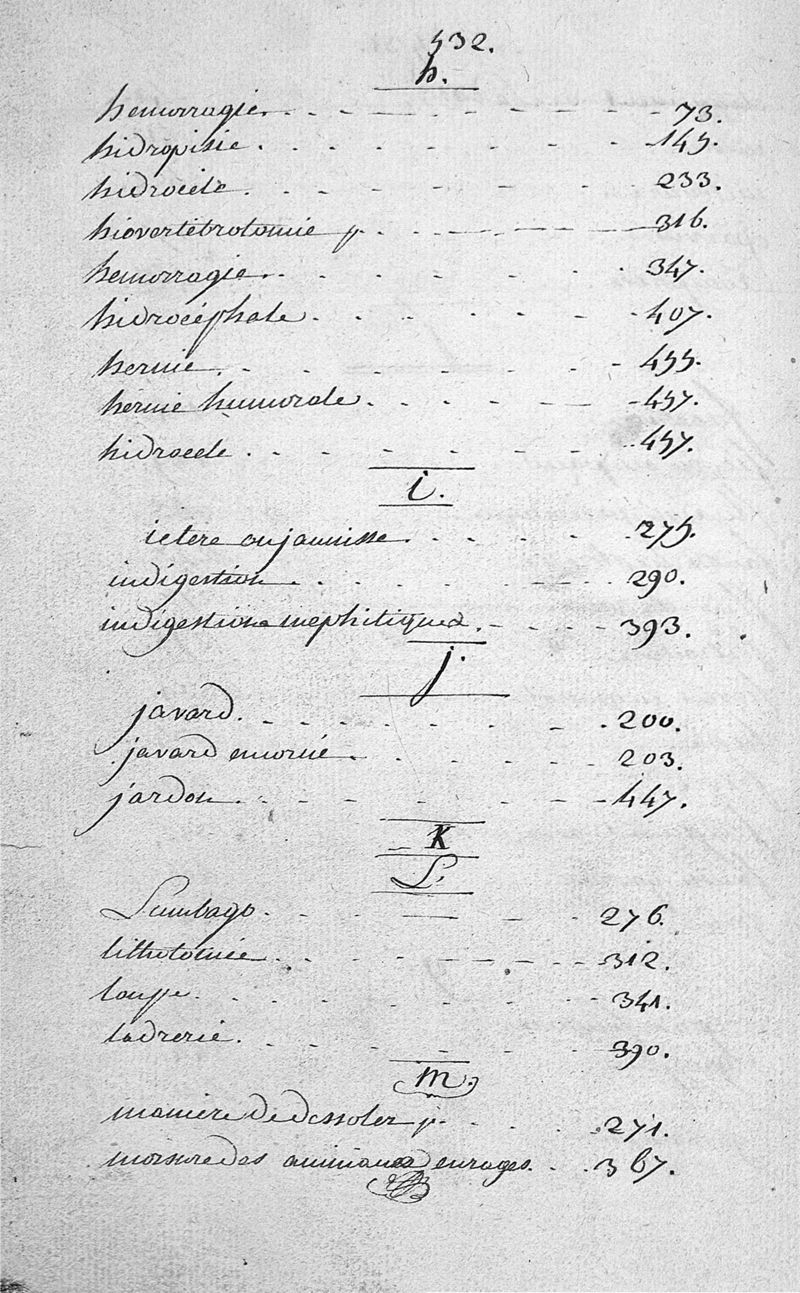 432.
h.
hemorragie. 73.
hidropisie. 145.
hidrocele. 233.
hiovertebrotomie p. 316.
hemorragie. 347.
hidrocéphale. 407.
hernie. 455.
hernie humorale. 457.
hidrocele. 457.
i.
ictere ou jaunisse. 275.
indigestion 290.
indigestions mephitiques. 393.
j.
javard. 200.
javard encorné. 203.
jardon. 447.
K
L.
Lumbago. 276.
lithotomie. 312.
loupe. 341.
ladrerie. 390.
m.
maniere de dessoler p. 271.
morsure des animaux enrages. 367.